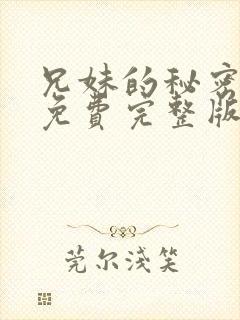 兄妹的秘密
免費完整版
莞尔淺笑